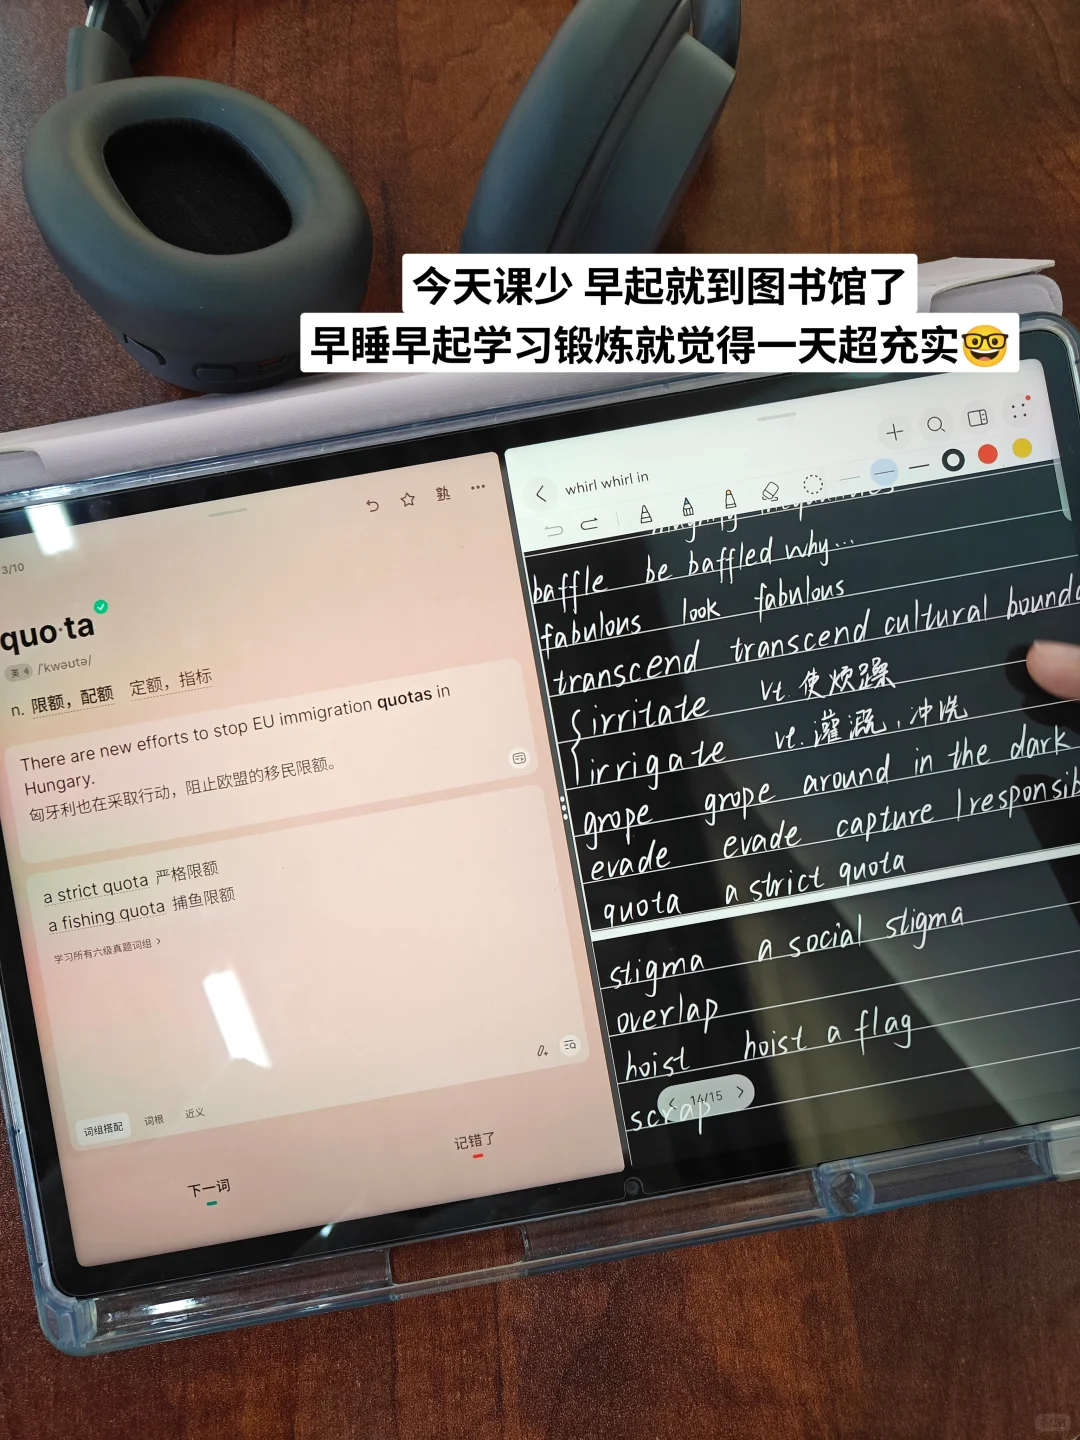 今天课少 早起就到图书馆了
早睡早起学习锻炼就觉得一天超充实🤓
3/10
熟
quo·ta
英 /ˈkwəʊtə/
n. 限额，配额 定额，指标
There are new efforts to stop EU immigration quotas in
Hungary.
匈牙利也在采取行动，阻止欧盟的移民限额。
a strict quota 严格限额
a fishing quota 捕鱼限额
学习所有六级真题词组 >
词组搭配 词根 近义
下一词 记错了
whirl whirl in
baffle be baffled why...
fabulous look fabulous
transcend transcend cultural
irritate vt. 使烦躁
irrigate vt. 灌溉，冲洗
grope grope around in the dark
evade evade capture
quota a strict quota
stigma a social stigma
overlap
hoist hoist a flag
14/15
scrap